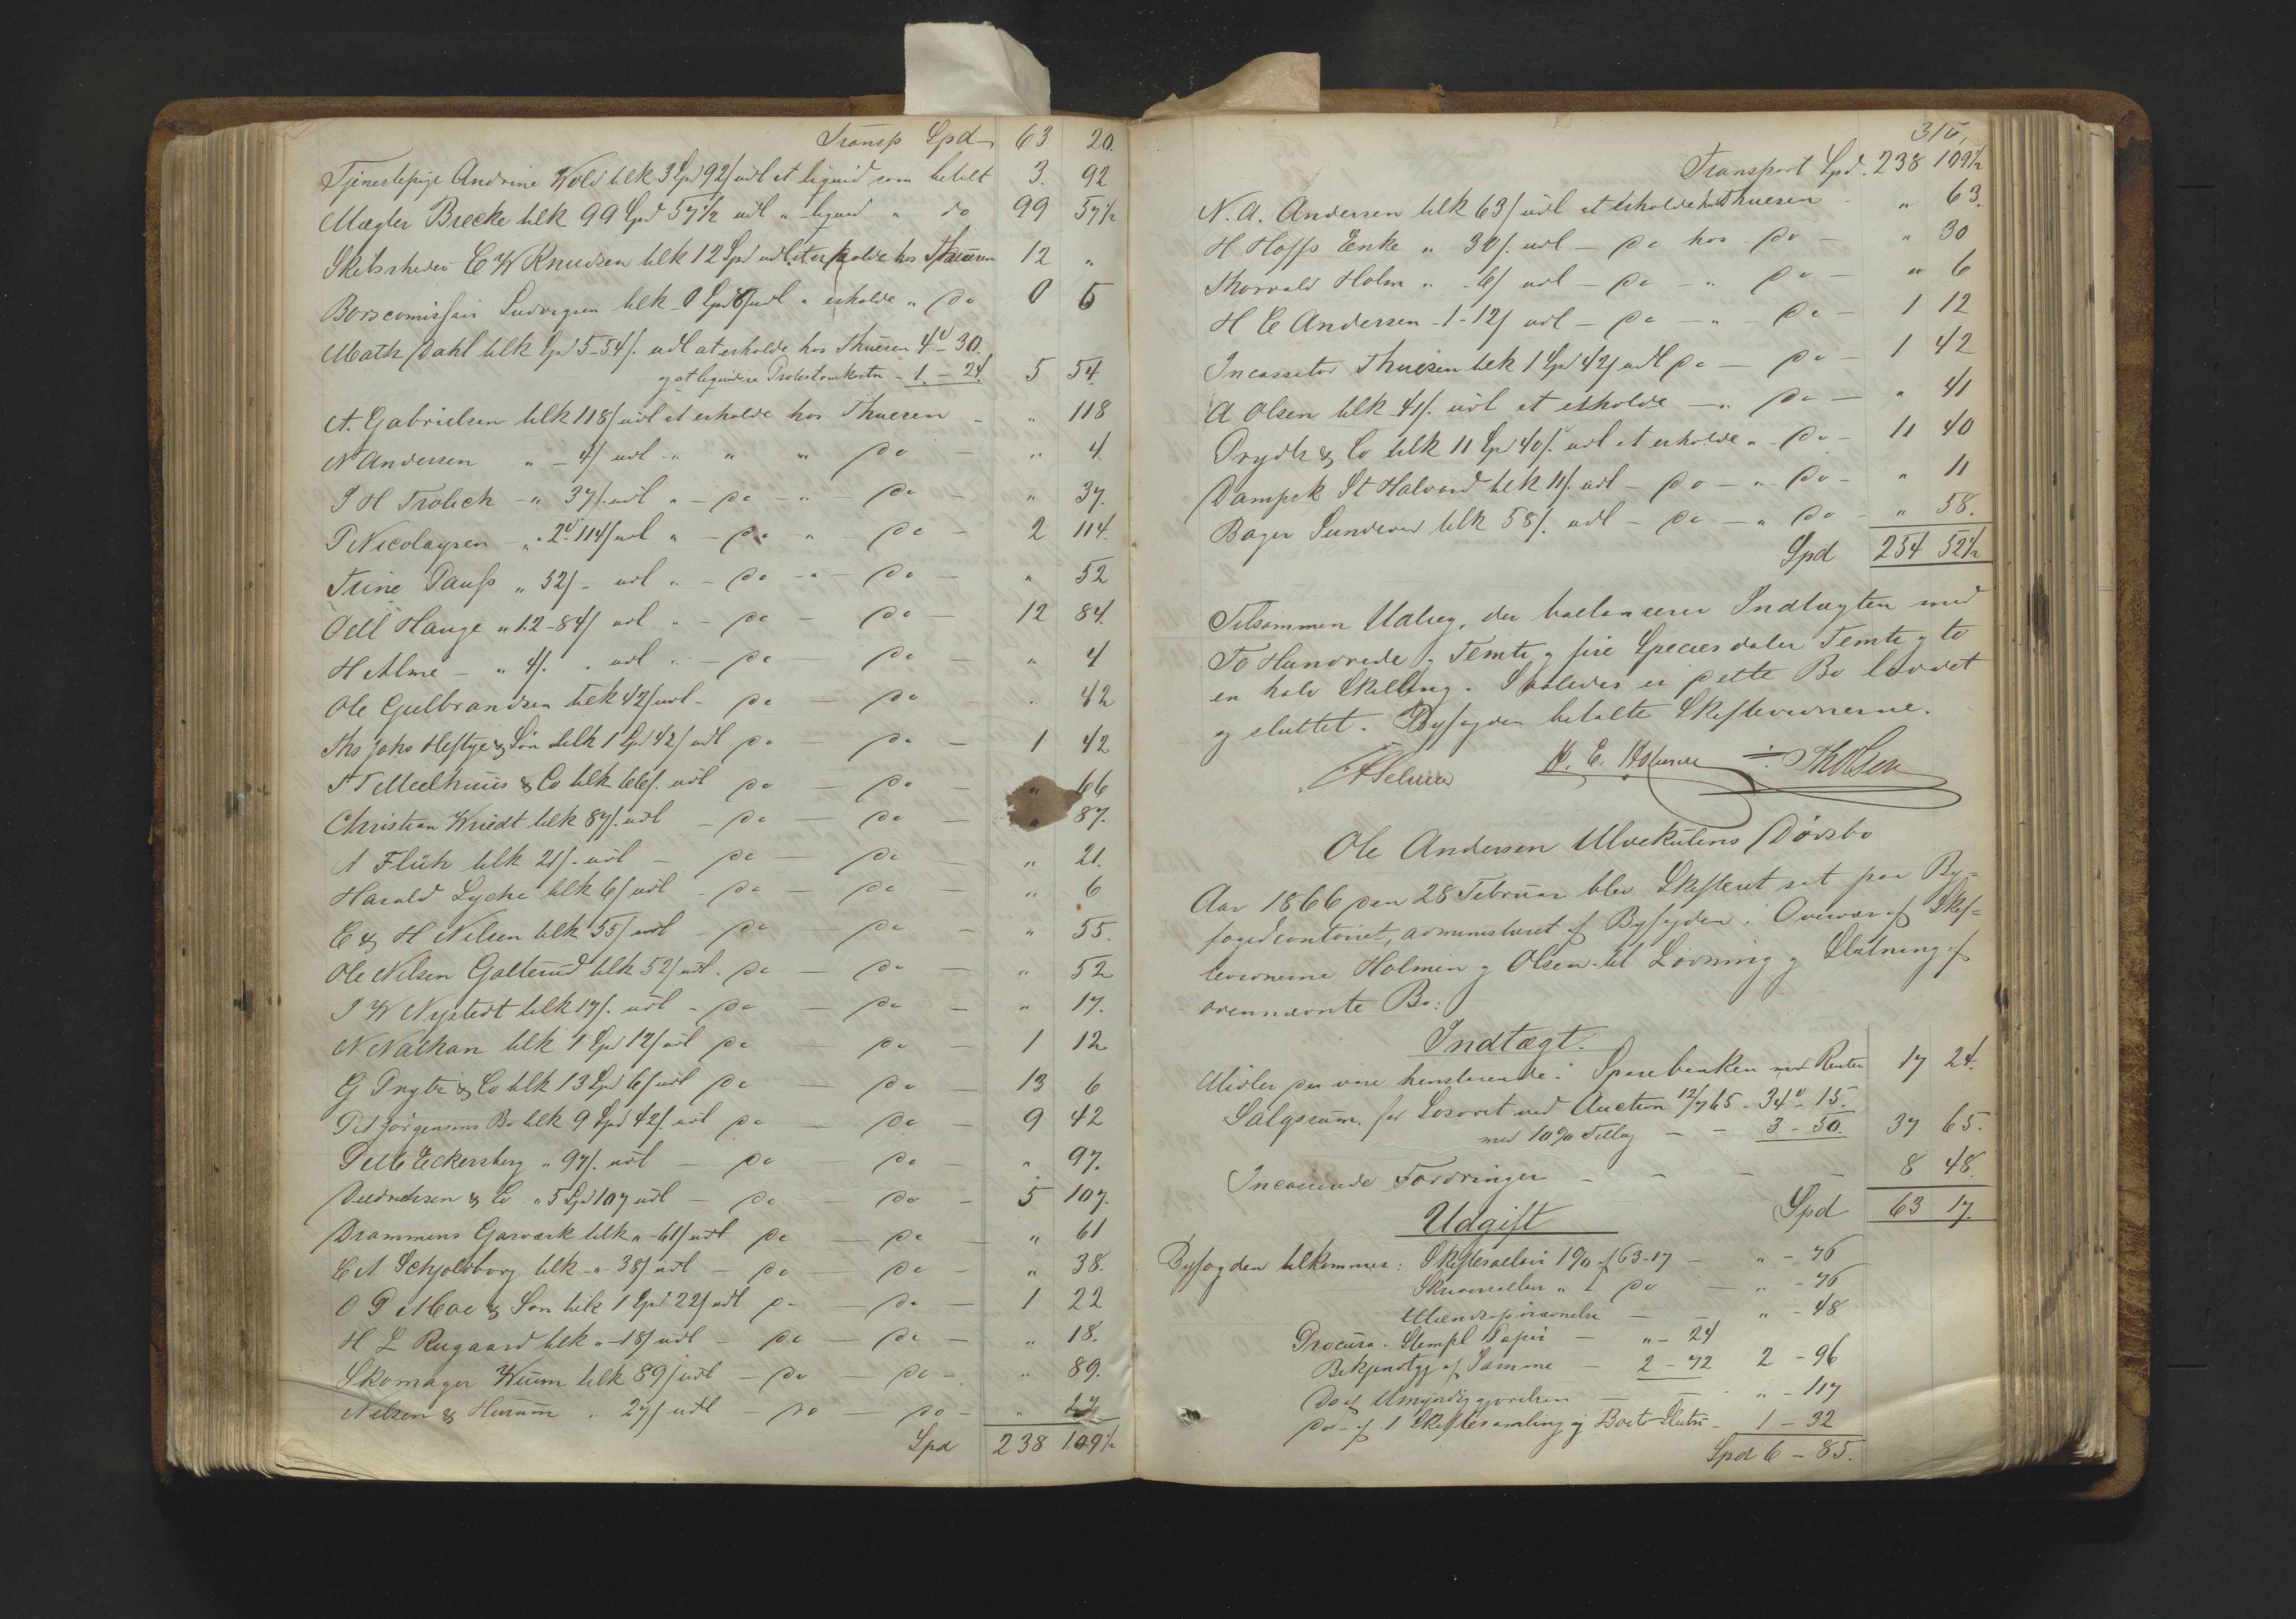 Transp Spd 63 20.
Tjenestepige Andrine Wold tilk 3 Spd 92/ udl at liquid som betalt 3. 92
Mægler Brecke tilk 99 Spd 57½ udl " liquid " do 99 57½
Skibsrheder C W Knudsen tilk 12 Spd udl at erholde hos Thuesen 12 "
Borscomissair Ludvigsen tilk 0 Spd udl " erholde " do 0 6
Math Dahl tilk Spd 5-54/. udl at erholde hos Thuesen 4-30.
og at liquidere Protestomkostn - 1.-24. 5 54
A. Gabrielsen tilk 118/ udl at erholde hos Thuesen - " 118
N Andersen " - 4/ udl " " " do - " 4.
J H Trolich - " 37/. udl " - do - " do - " 37.
P Nicolaysen - " 2-114/ udl " - do - " - do - 2 114.
Trine Pauss " 52/ - udl " - do - " - do - " 52
O M Hauge " 12-84/ udl " - do - do - 12 84.
H Alme - " 4/. " udl " - do do - " 4
Ole Gulbrandsen tilk 42/ udl - do - do - " 42
Ths Johs Heftye & Søn tilk 1 Spd 42/ udl do - do - 1 42
T Meelhuus & Co tilk 66/. udl do - do - " 66
Christian Wriedt tilk 87/. udl - do - do - " 87.
A Flüh tilk 21/. udl - do - do - " 21.
Harald Lyche tilk 6/ udl - do - do - " 6
C & H Nilsen tilk 55/ udl - do - do - " 55.
Ole Nilsen Galterud tilk 52/ udl. do - do - " 52
J W Nystedt tilk 17/. udl - do - do - " 17.
N Nathan tilk 1 Spd 12/ udl do - do - 1 12
G Prytz & Co tilk 13 Spd 6/ udl do - do - 13 6
P A Jørgensens Bo tilk 9 Spd 42/. udl do - do - 9 42
P M Eckersberg " 97/. udl - do - do - " 97.
Diedrichsen & Co " 5 Spd 107 udl - do - do - 5 107.
Drammens Gasværk tilk " - 61/ udl do - do - " 61
C A Schjoldborg tilk - " 38/ udl - do - do - " 38.
O P Moe & Søn tilk 1 Spd 22/ udl do - do - 1 22
H L Rugaard tilk " - 18/ udl - do - do - " 18.
Skomager Wuum tilk 89/ udl - do - do - " 89.
Nilsen & Huuum " 27/ udl - do - do - " 27
Spd 238 109½
310,
Transport Spd. 238 109½
N. A. Andersen tilk 63/ udl at erholde hos Thuesen - " 63.
H Hoffs Enke " 30/. udl - do hos do - " 30
Thorvald Holm " - 6/ udl - do - " do - " 6
H C Andersen - 1-12/ udl - do - " - do - 1 12
Incassator Thuesen tilk 1 Spd 42/ udl do - do - 1 42
A Olsen tilk 41/. udl at erholde - " do - " 41
Prydz & Co tilk 11 Spd 40/. udl at erholde " - do - 11 40
Dampsk St Halvard tilk 11/. udl - do - " - do - " 11
Bager Sunderud tilk 58/. udl - do - " do - " 58.
Spd 254 52½
Tilsammen Udlæg, der ballancerer Indtægten med
To Hundrede og Femti og fire Speciesdaler Femti og to
en halv Skilling. Saaledes er dette Bo lovet
og sluttet. Byfogden betalte Skiftevidnerne.
Olsen
Ole Andersen Ulvekulens Dødsbo
Aar 1866 den 28 Februar blev Skifteret sat paa By-
fogedcontoiret, administreret af Byfogden i Overvær af Skif-
tevidnerne Holmen og Olsen til Lovning og Slutning af
ovennævnte Bo:
Indtægt.
Midler der vare henstaaende i Sparebanken med Renter 17 24.
Salgssum for Løsøret ved Auction 12/7 65 - 34-15.
med 10% Tillæg - - 3-50. 37 65.
Incasserede Fordringer - - - - 8 48
Spd 63 17.
Udgift
Byfogden tilkommer: Skiftesallair 1% af 63-17 - " - 76
Skriversallair " ½ do - " - 76
Mænds opnævnelse - - " - 48
Procura. Stempl Papir - " - 24
Bekjendtgj af Samme - 2-72 2-96
Do af Umyndiggjørelsen - - " - 117
do - af 1 Skiftesamling og Boets Slutn - 1-32
Spd 6-85.